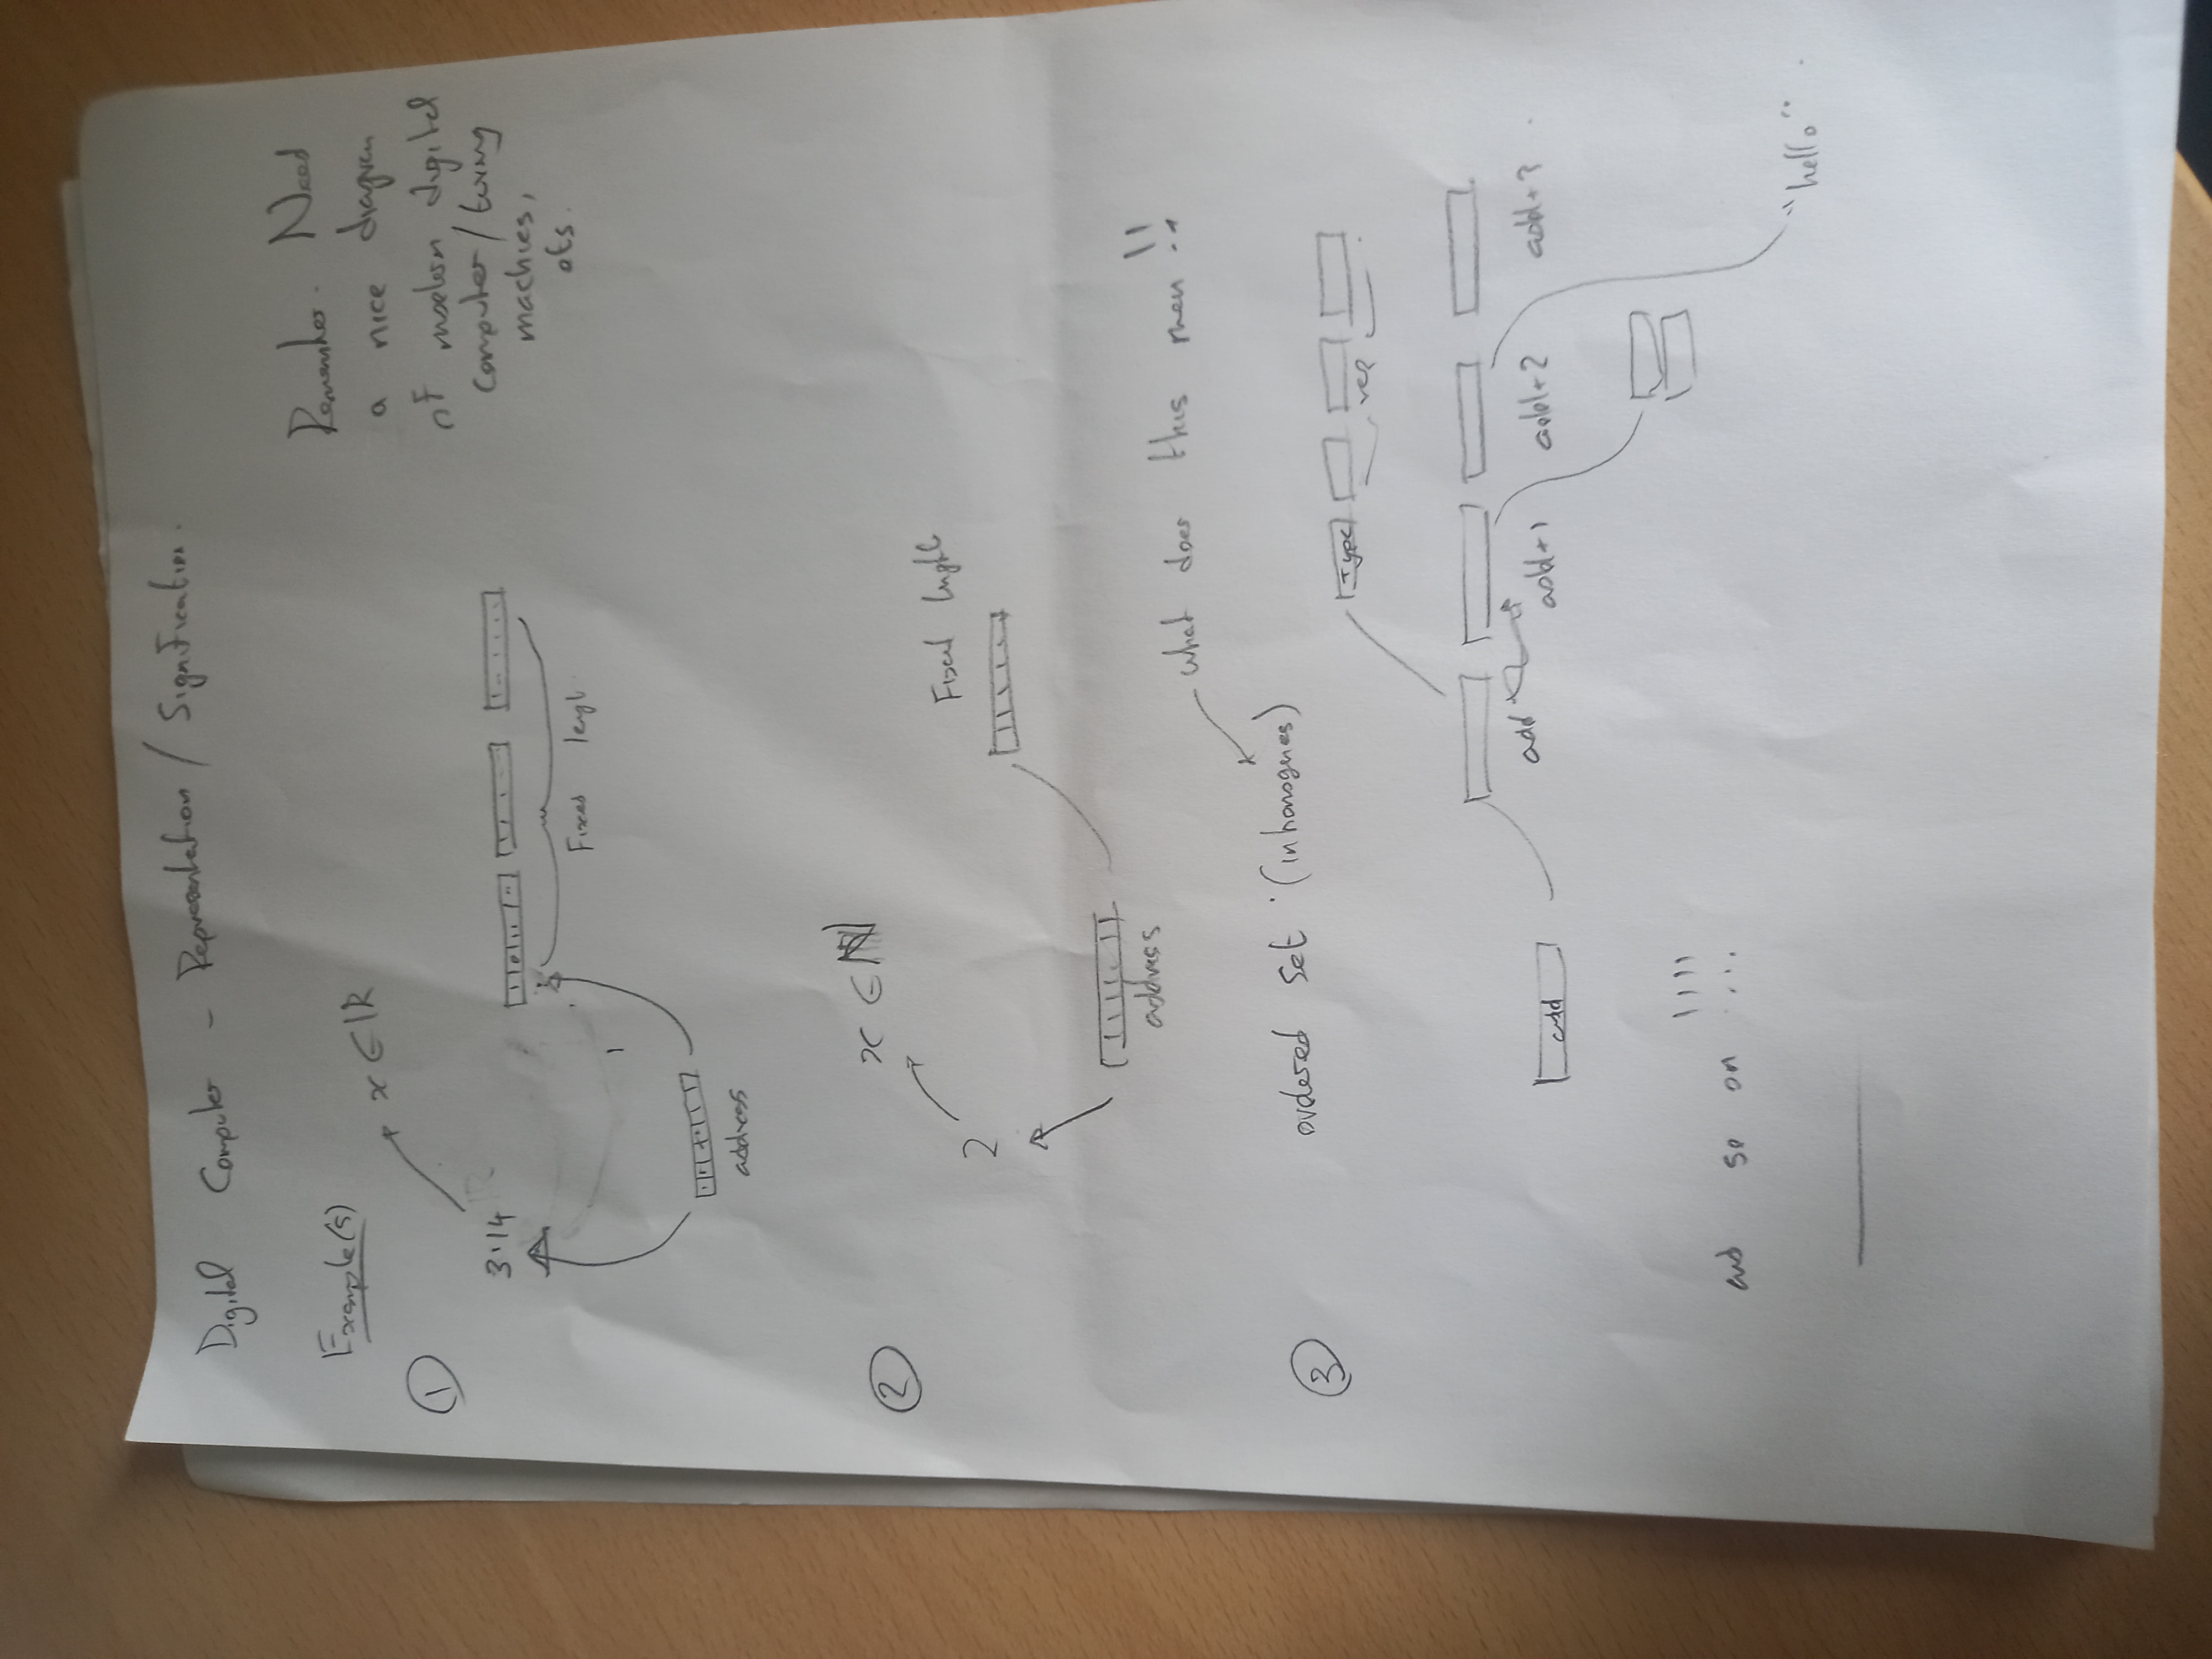 Digital Computer - Representation / Signification.
Example(s)
Remember. Need
a nice diagram
of modern digital
computer / turing
machies,
ets.
① x ∈ ℝ
3.14
Fixed lengt
address
② x ∈ ℕ
2
Fixed lenght
address
what does this men !!
③ ordered set (inhomogenes)
Type
rep
add
add add+1 add+2 add+3
and so on !!!!
"hello"